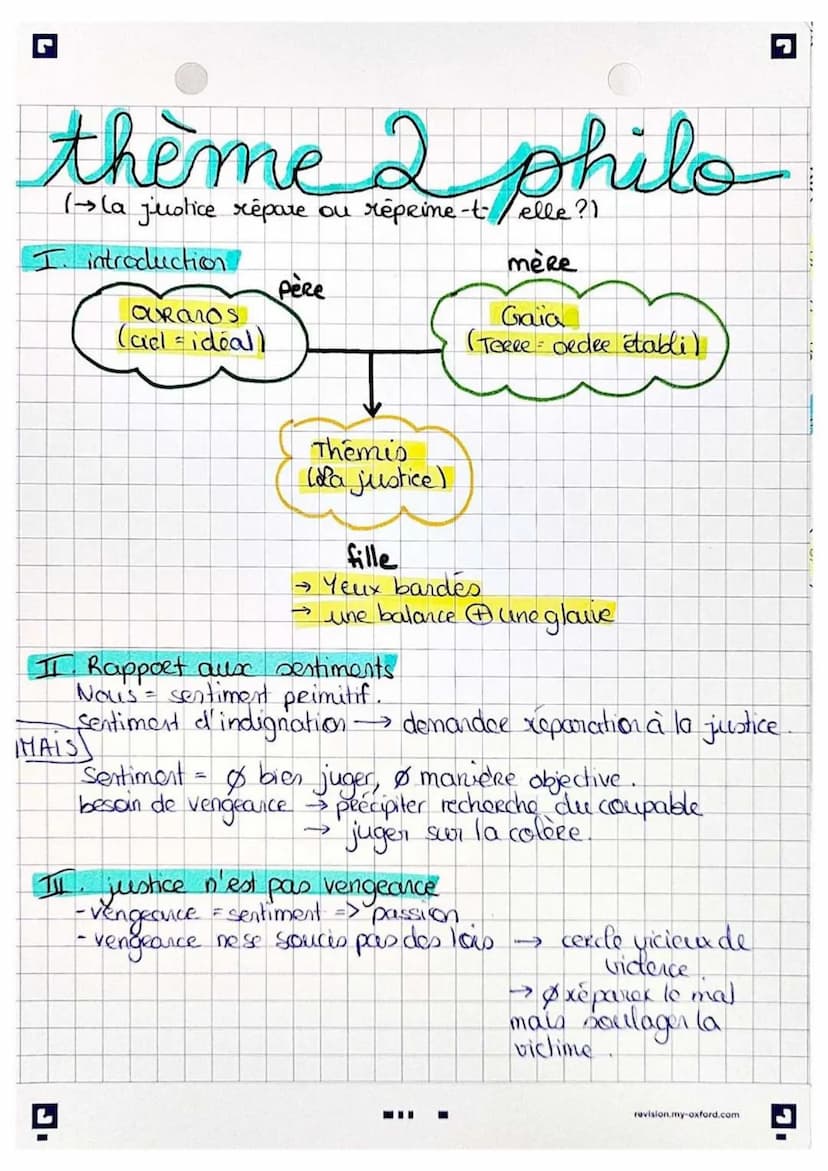 thème 2 philo
(→ la justice répare ou réprime-t-elle ?)
I. introduction
père
mère
ouranos
(ciel = idéal)
Gaïa
(Terre = ordre établi)
Thémis
(la justice)
fille
→ Yeux bardés
→ une balance ⊕ une glaive
II. Rapport aux sentiments
Nous = sentiment primitif.
sentiment d'indignation → demander réparation à la justice.
MAIS
Sentiment = Ø bien juger, Ø manière objective.
besoin de vengeance → précipiter recherche du coupable
→ juger sur la colère.
III. justice n'est pas vengeance
- vengeance = sentiment => passion
- vengeance ne se soucis pas des lois → cercle vicieux de
violence.
→ Ø réparer le mal
mais soulager la
victime.
revision.my-oxford.com